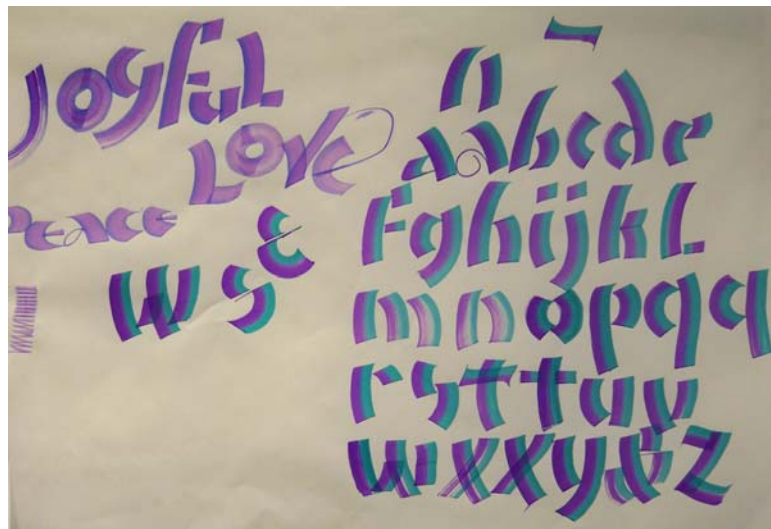 Joyful
Love
Peace
w s &
n
a a b c d e
f g h i j k l
m n n o p q q
r s t t u v
w x x y & z